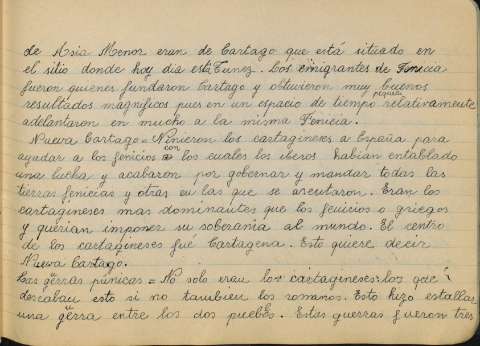 de Asia Menor eran de Cartago que está situado en
el sitio donde hoy dia está Tunez. Los emigrantes de Fenicia
fueron quienes fundaron Cartago y obtuvieron muy buenos
resultados magnificos pues en un espacio de tiempo pequeño relativamente
adelantaron en mucho a la misma Fenicia.
Nueva Cartago = Vinieron los cartagineses a España para
ayudar a los fenicios con los cuales los iberos habian entablado
una lucha y acabaron por gobernar y mandar todas las
tierras fenicias y otras en las que se asentaron. Eran los
cartagineses mas dominantes que los fenicios o griegos
y querian imponer su soberania al mundo. El centro
de los cartagineses fué Cartagena. Esto quiere decir
Nueva Cartago.
Las gerras púnicas = No solo eran los cartagineses los que
deseaban esto si no tambien los romanos. Esto hizo estallar
una gerra entre los dos pueblos. Estas guerras fueron tres